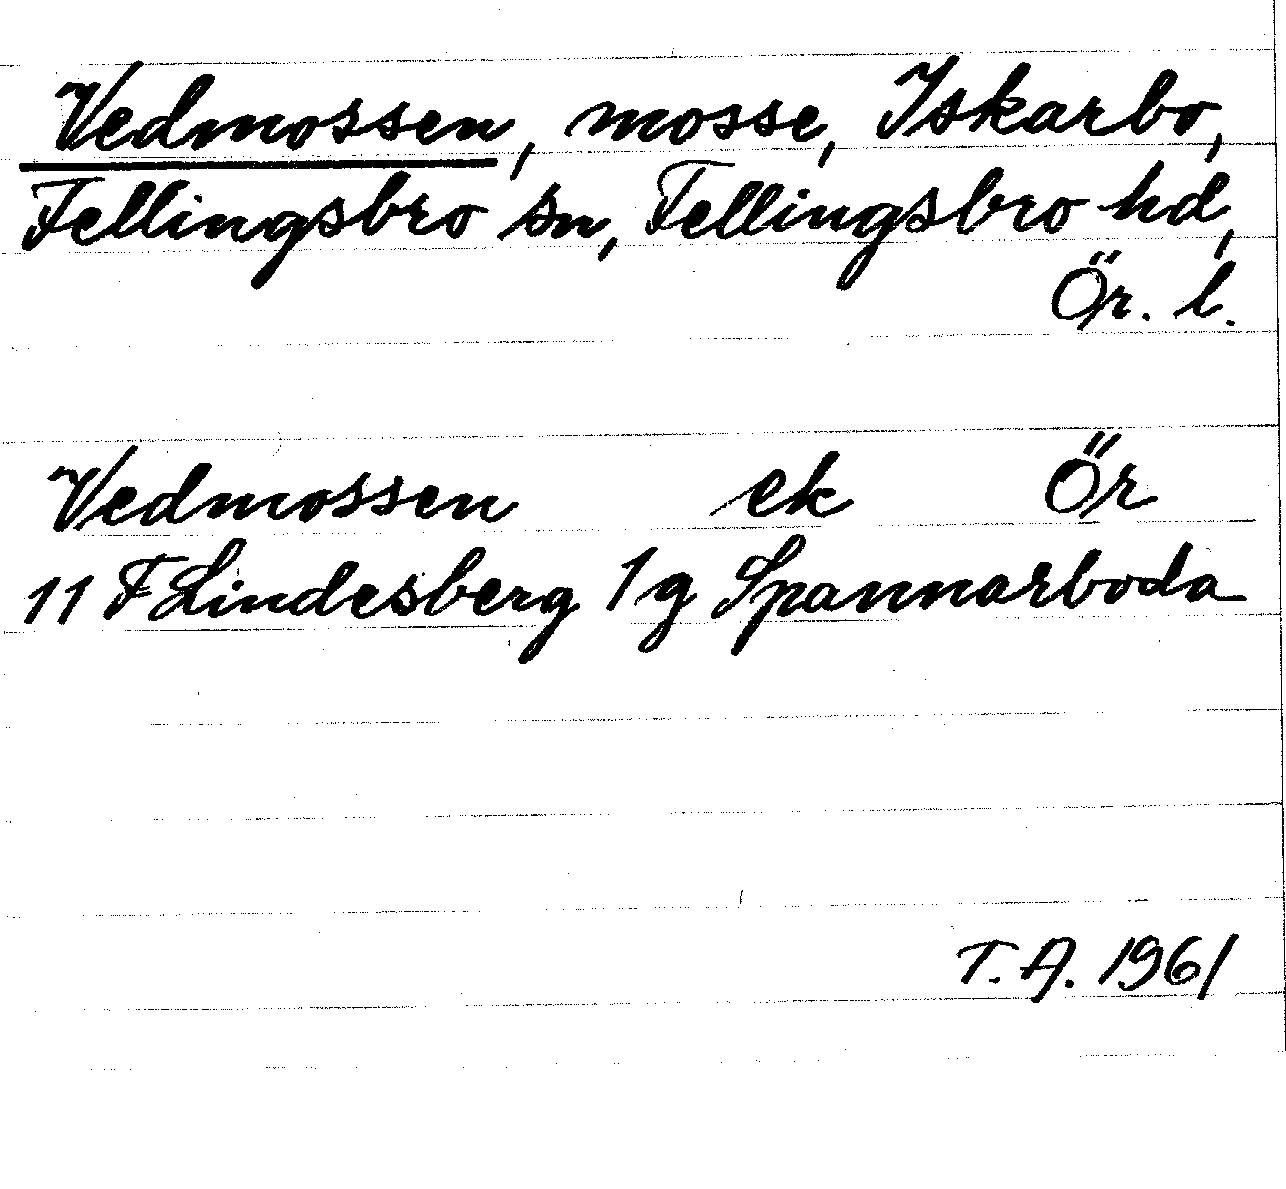 Vedmossen, mosse, Iskarbo,
Fellingsbro sn, Fellingsbro hd,
Ör. l.
Vedmossen ek Ör
11 F Lindesberg 1 g Spannarboda
T. A. 1961